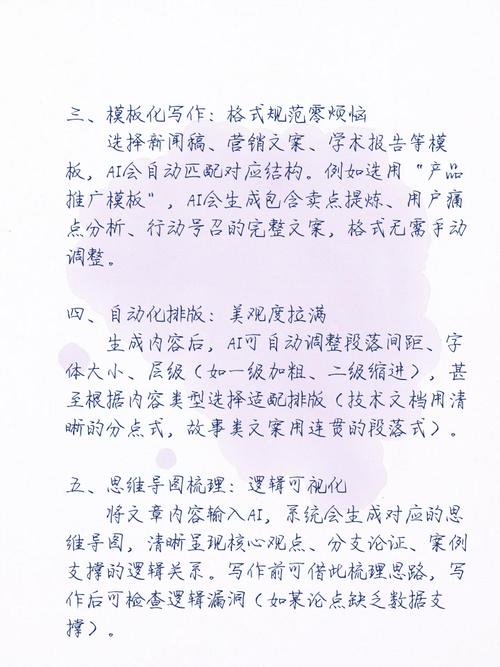 三、模板化写作：格式规范零烦恼
选择新闻稿、营销文案、学术报告等模
板，AI会自动匹配对应结构。例如选用“产品
推广模板”，AI会生成包含卖点提炼、用户痛
点分析、行动号召的完整文案，格式无需手动
调整。
四、自动化排版：美观度拉满
生成内容后，AI可自动调整段落间距、字
体大小、层级（如一级加粗、二级缩进），甚
至根据内容类型选择适配排版（技术文档用清
晰的分点式，故事类文案用连贯的段落式）。
五、思维导图梳理：逻辑可视化
将文章内容输入AI，系统会生成对应的思
维导图，清晰呈现核心观点、分支论证、案例
支撑的逻辑关系。写作前可借此梳理思路，写
作后可检查逻辑漏洞（如某论点缺乏数据支
撑）。